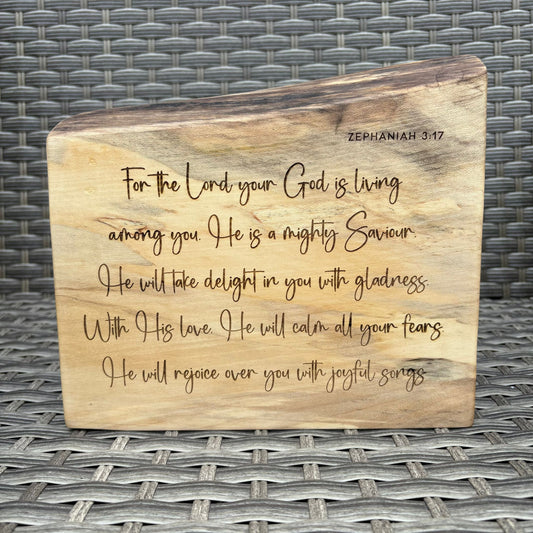 ZEPHANIAH 3:17
For the Lord your God is living
among you. He is a mighty Saviour.
He will take delight in you with gladness.
With His love, He will calm all your fears.
He will rejoice over you with joyful songs.